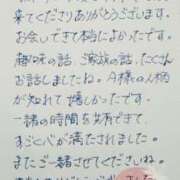 来てくださりありがとうございます。
お会いできて本当によかったです。
趣味の話、家族の話、たくさん
お話しましたね。A様の人柄
が知れて嬉しかったです。
一緒の時間を共有できて、
すごく心が満たされました。
またご一緒させてくださいね。